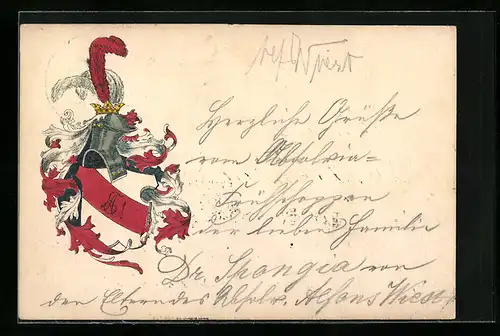 Herzliche Grüße
vom Absolvia=
Frühschoppen
der lieben Familie
Dr. Spangia von
den Eltern des Absolv. Alfons Wiest